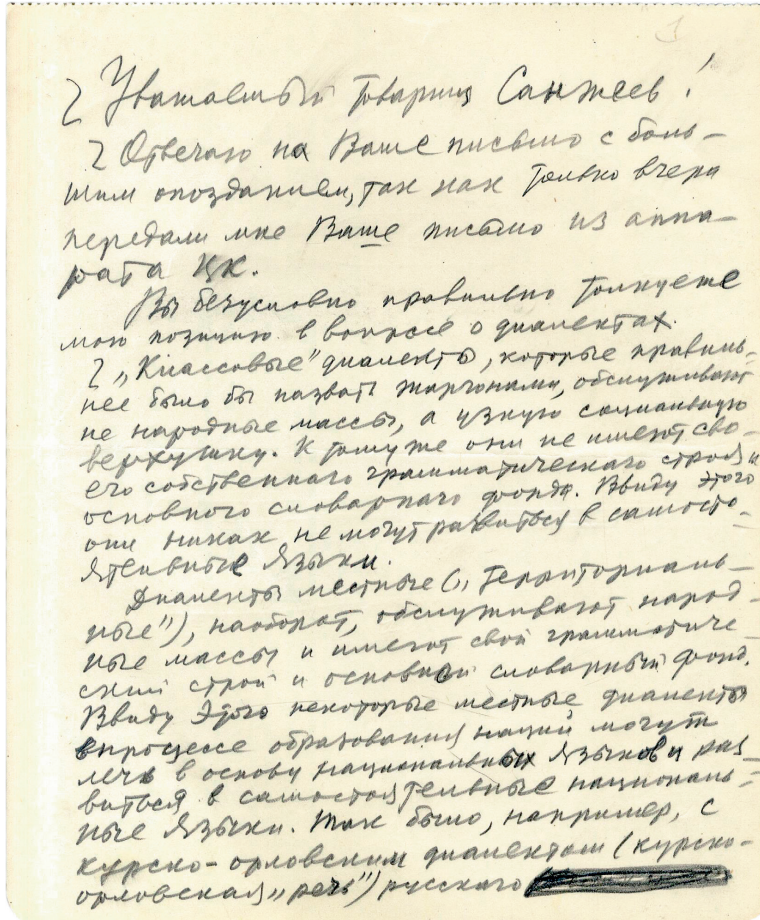 Уважаемый товарищ Санжеев!
Отвечаю на Ваше письмо с боль-
шим опозданием, так как только вчера
передали мне Ваше письмо из аппа-
рата ЦК.
Вы безусловно правильно толкуете
мою позицию в вопросе о диалектах.
„Классовые” диалекты, которые правиль-
нее было бы назвать жаргонами, обслуживают
не народные массы, а узкую социальную
верхушку. К тому же они не имеют сво-
его собственного грамматического строя и
основного словарного фонда. Ввиду этого
они никак не могут развиться в самосто-
ятельные языки.
Диалекты местные („территориаль-
ные”), наоборот, обслуживают народ-
ные массы и имеют свой грамматиче-
ский строй и основной словарный фонд.
Ввиду этого некоторые местные диалекты
в процессе образования наций могут
лечь в основу национальных языков и раз-
виться в самостоятельные националь-
ные языки. Так было, например, с
курско-орловским диалектом (курско-
орловская „речь”) русского